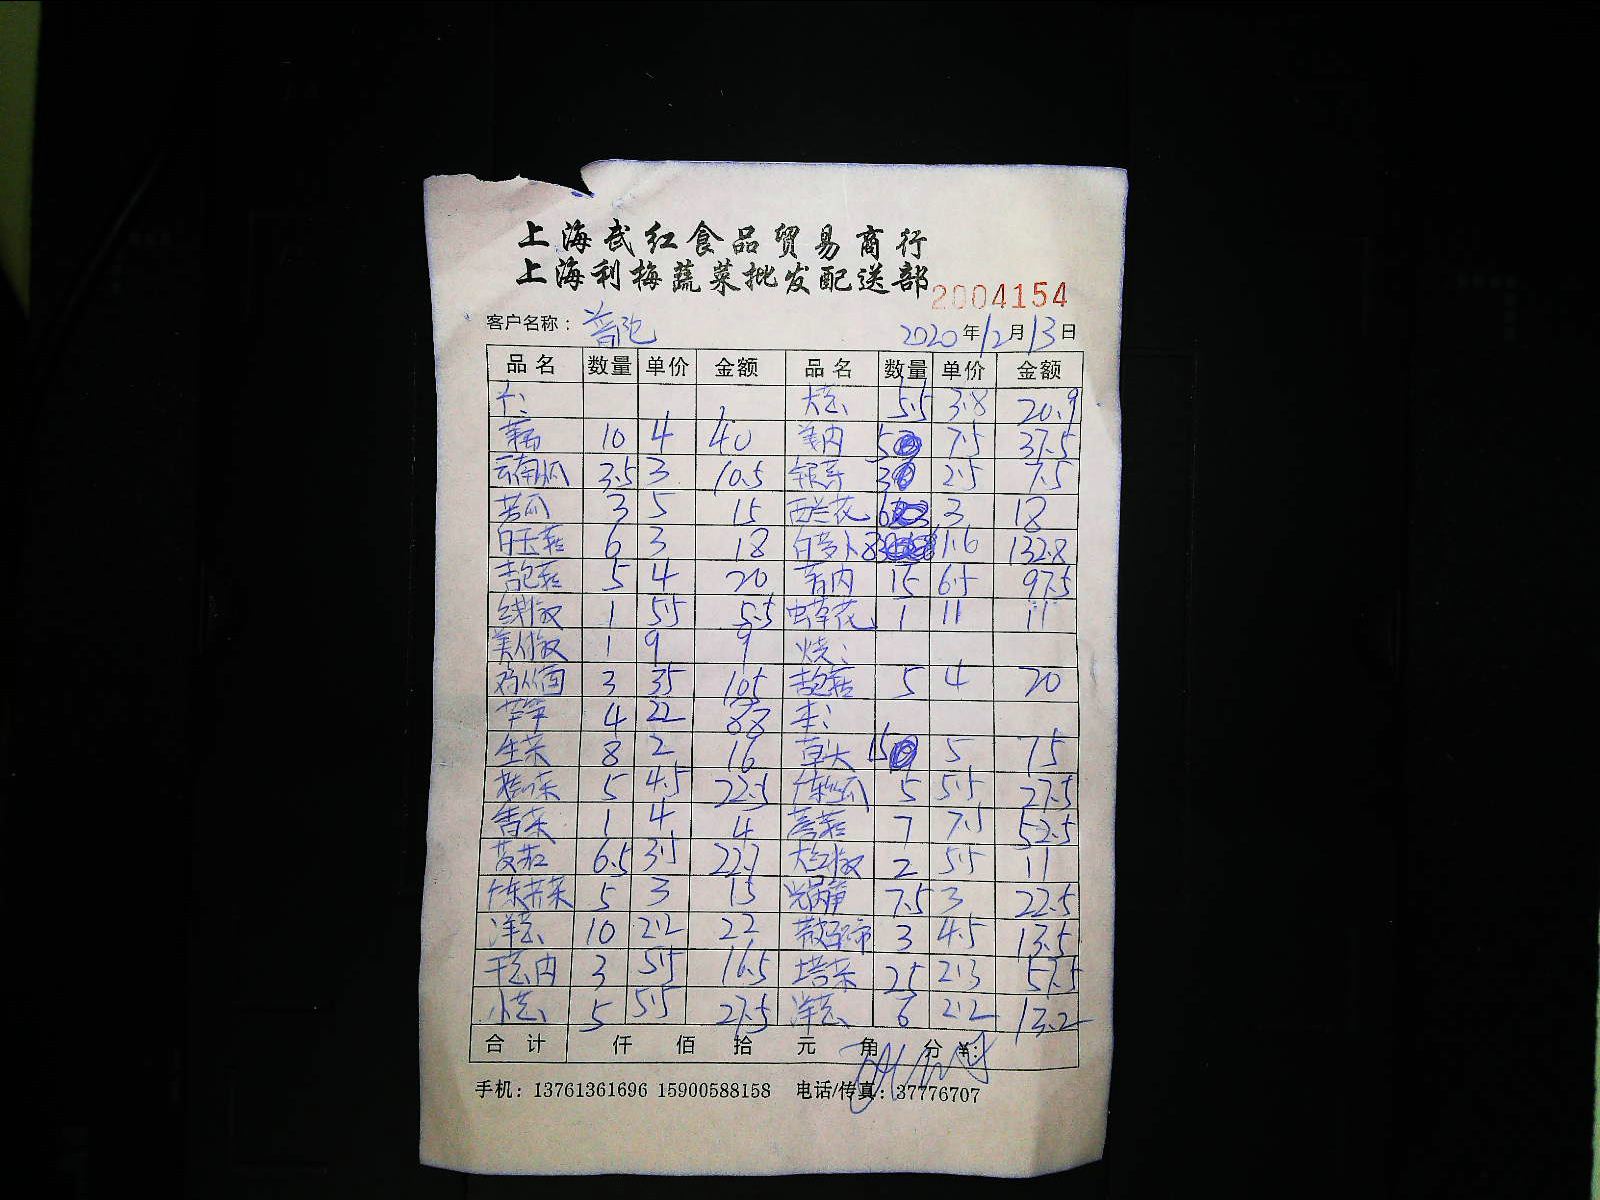 上海武红食品贸易商行
上海利梅蔬菜批发配送部
2004154
客户名称： 2020年12月13日
品名 数量 单价 金额 品名 数量 单价 金额
大芝、 5.5 3.8 20.9
10 4 40 羊肉 5 7.5 37.5
云南瓜 3.5 3 10.5 银芽 3 2.5 7.5
苦瓜 3 5 15 西兰花 6 3 18
白玉菇 6 3 18 白萝卜 83 1.6 132.8
杏鲍菇 5 4 20 15 6.5 97.5
线椒 1 5.5 5.5 虫草花 1 11 11
美人椒 1 9 9 烧：
鸡从菌 3 35 105 杏鲍菇 5 4 20
芦笋 4 22 88 本：
生菜 8 2 16 草头 15 5 75
5 4.5 22.5 5 5.5 27.5
香菜 1 4 4 7 7.5 52.5
6.5 3.5 22.7 大红椒 2 5.5 11
5 3 15 7.5 3 22.5
洋芝、 10 2.2 22 3 4.5 13.5
3 5.5 16.5 塔菜 25 2.3 57.5
小芝、 5 5.5 27.5 洋芝、 6 2.2 13.2
合计 仟 佰 拾 元 角 分 ¥：
手机：13761361696 15900588158 电话/传真：37776707